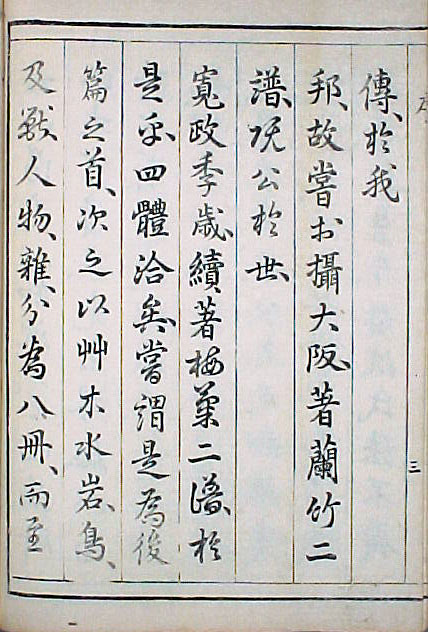 傳、於我
邦、故嘗於攝大阪、著蘭竹二
譜、既公於世、
寬政季歲、續著梅菊二譜、於
是乎四體洽矣、嘗謂是為後
篇之首、次之以艸木水岩、鳥、
及獸、人物、雜、分為八冊、而至
三